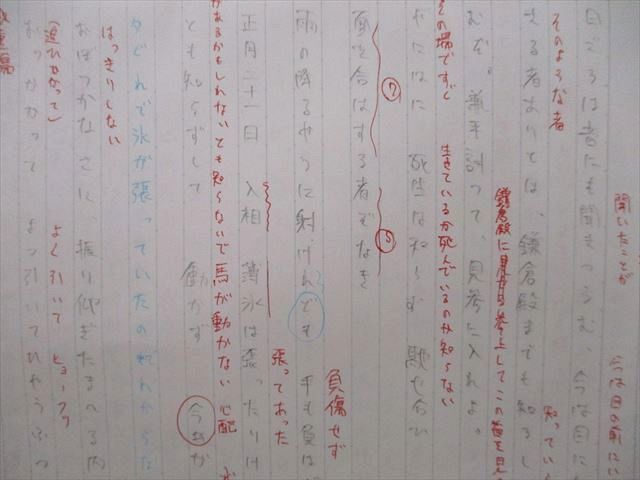 聞いたことが
今は目の前に
日ごろは音にも聞きつらむ、今は目に
知ってい
そのような者
まる者ありとは、鎌倉殿までも知ろし
鎌倉殿に見せろ
むぞ。兼平討つて、見参に入れよ。
その場ですぐ
生きているか死んでいるのか知らない
やにはに 死生は知らず 馳せ合ひ
⑦
⑤
面を合はする者ぞなき
負傷せず
雨の降るやうに射けれども 手も負は
張ってあった
正月二十一日 入相 薄氷は張つたりけ
があるかもしれないとも知らないで馬が動かない 心配
とも知らずして 動かず 今井が
夕ぐれで氷が張っていたの
はっきりしない
おぼつかなさに 振り仰ぎたまへる内
(追いかかって) よく引いて ヒョーフッ
おつかかつて よつ引いてひやうふつ